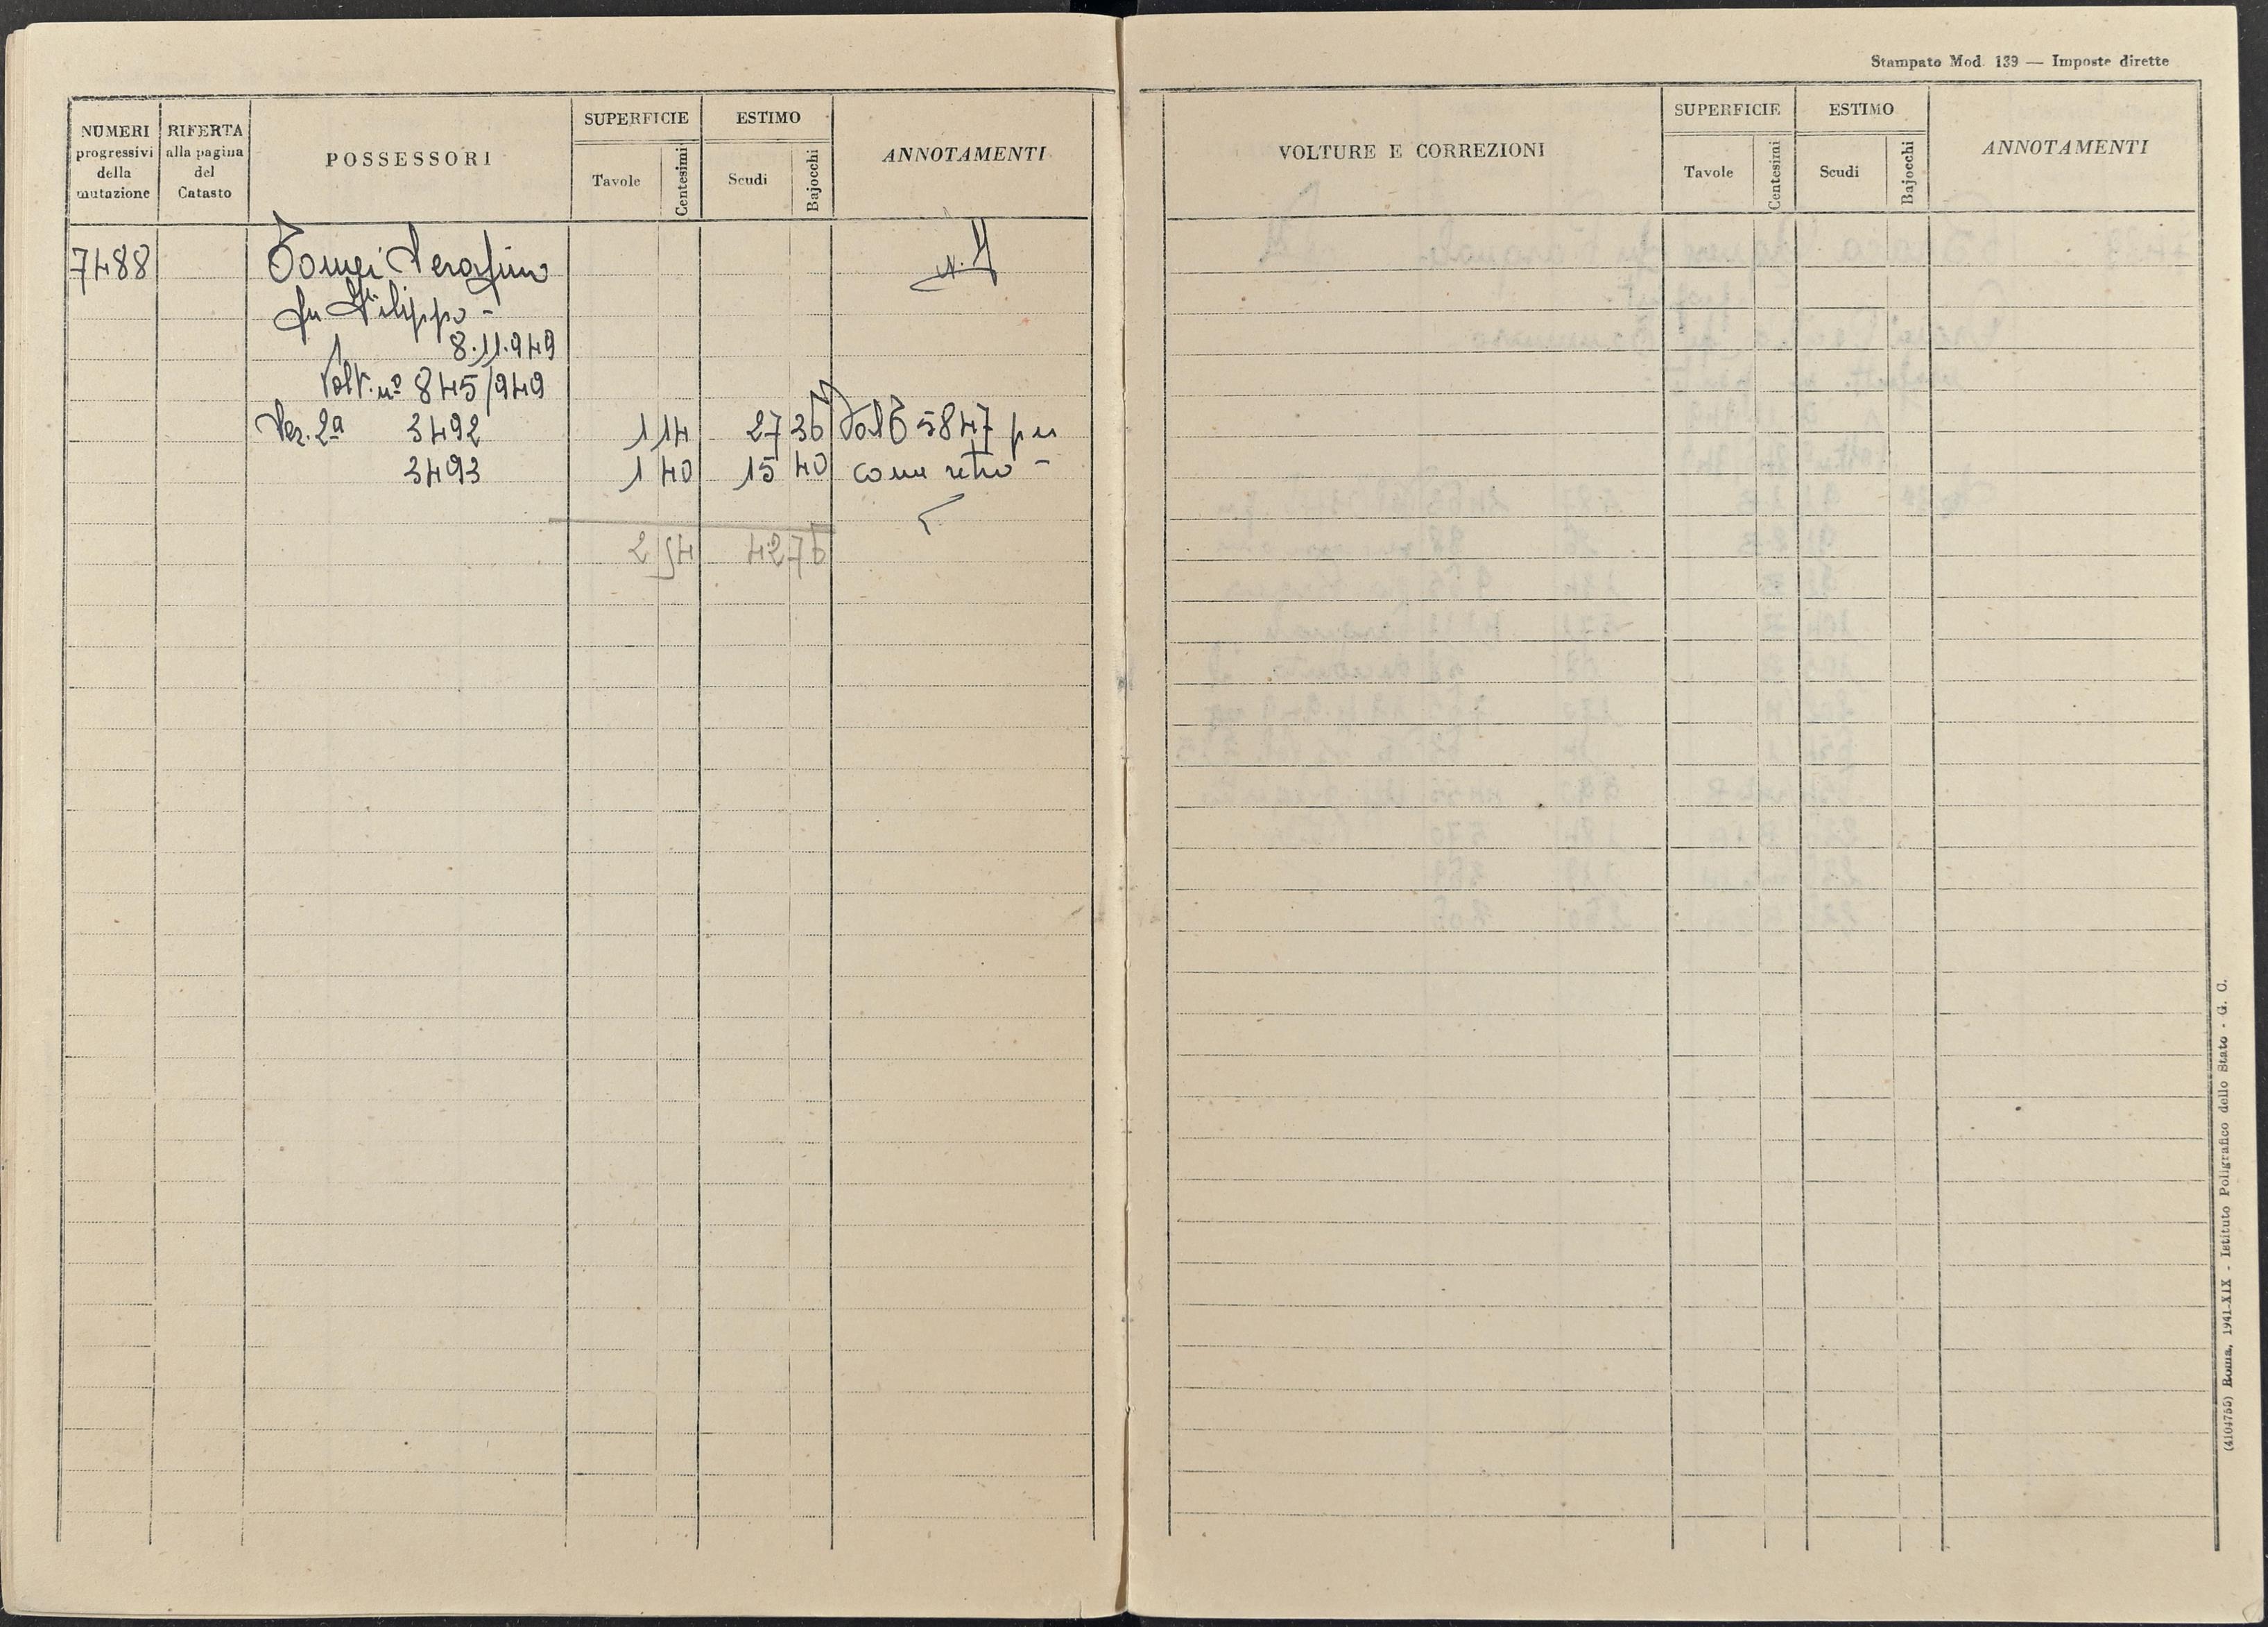 NUMERI progressivi della mutazione
RIFERTA alla pagina del Catasto
POSSESSORI
SUPERFICIE
Tavole
Centesimi
ESTIMO
Scudi
Bajocchi
ANNOTAMENTI
7488
Tomei Serafino
fu Filippo -
8.11.949
Volt. nº 845/949
Sez. 2ª 3492 1 14 27 36 Dal 5847 per
3493 1 40 15 40 come retro -
2 54 42 76
Stampato Mod. 139 — Imposte dirette
VOLTURE E CORREZIONI
SUPERFICIE
Tavole
Centesimi
ESTIMO
Scudi
Bajocchi
ANNOTAMENTI
(4104755) Roma, 1941-XIX - Istituto Poligrafico dello Stato - G. C.